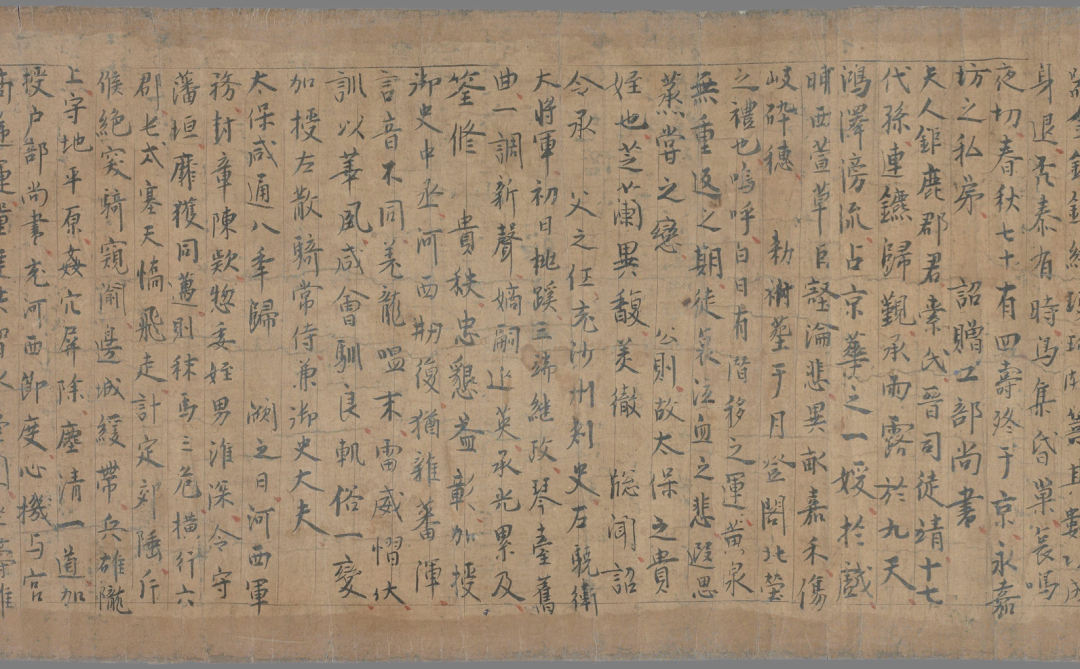 身退罷秦有時烏集昏巢哀鳴
夜切春秋七十有四壽終于京永嘉
坊之私第 詔贈工部尚書
夫人鉅鹿郡君索氏晉司徒靖十七
代孫連鑣歸覲承雨露於九天
鴻澤滂流占京華之一媛於戲
晡西萱草巨壑淪悲異畝嘉禾傷
岐碎穗 勅祔塟于月登閣北塋
之禮也嗚呼白日有潛移之運黃泉
無重返之期徒哀泣血之悲遐思
蒸嘗之戀 公則故太保之貴
姪也芝蘭異馥美徹 牕聞詔
令承 父之任充沙州刺史左驍衛
大將軍初日桃蹊三端継政琴臺舊
曲一調新聲嫡嗣延英承光累及
筌修 貴秩忠懇益彰加授
御史中丞河西刱復猶雜蕃渾
言音不同羌龍嗢末雷威慴伏
訓以華風咸會馴良軌俗一變
加授左散騎常侍兼御史大夫
太保咸通八年歸 闕之日河西軍
務封章陳欵惣委姪男淮深令守
藩垣靡獲同邁則秣馬三危横行六
郡 塞天憍飛走計定郊陲斥
候絕突騎窺 邊城緩帶兵雄隴
上守地平原姦宄屏除塵清一道加
授户部尚書充河西節度心機与宮